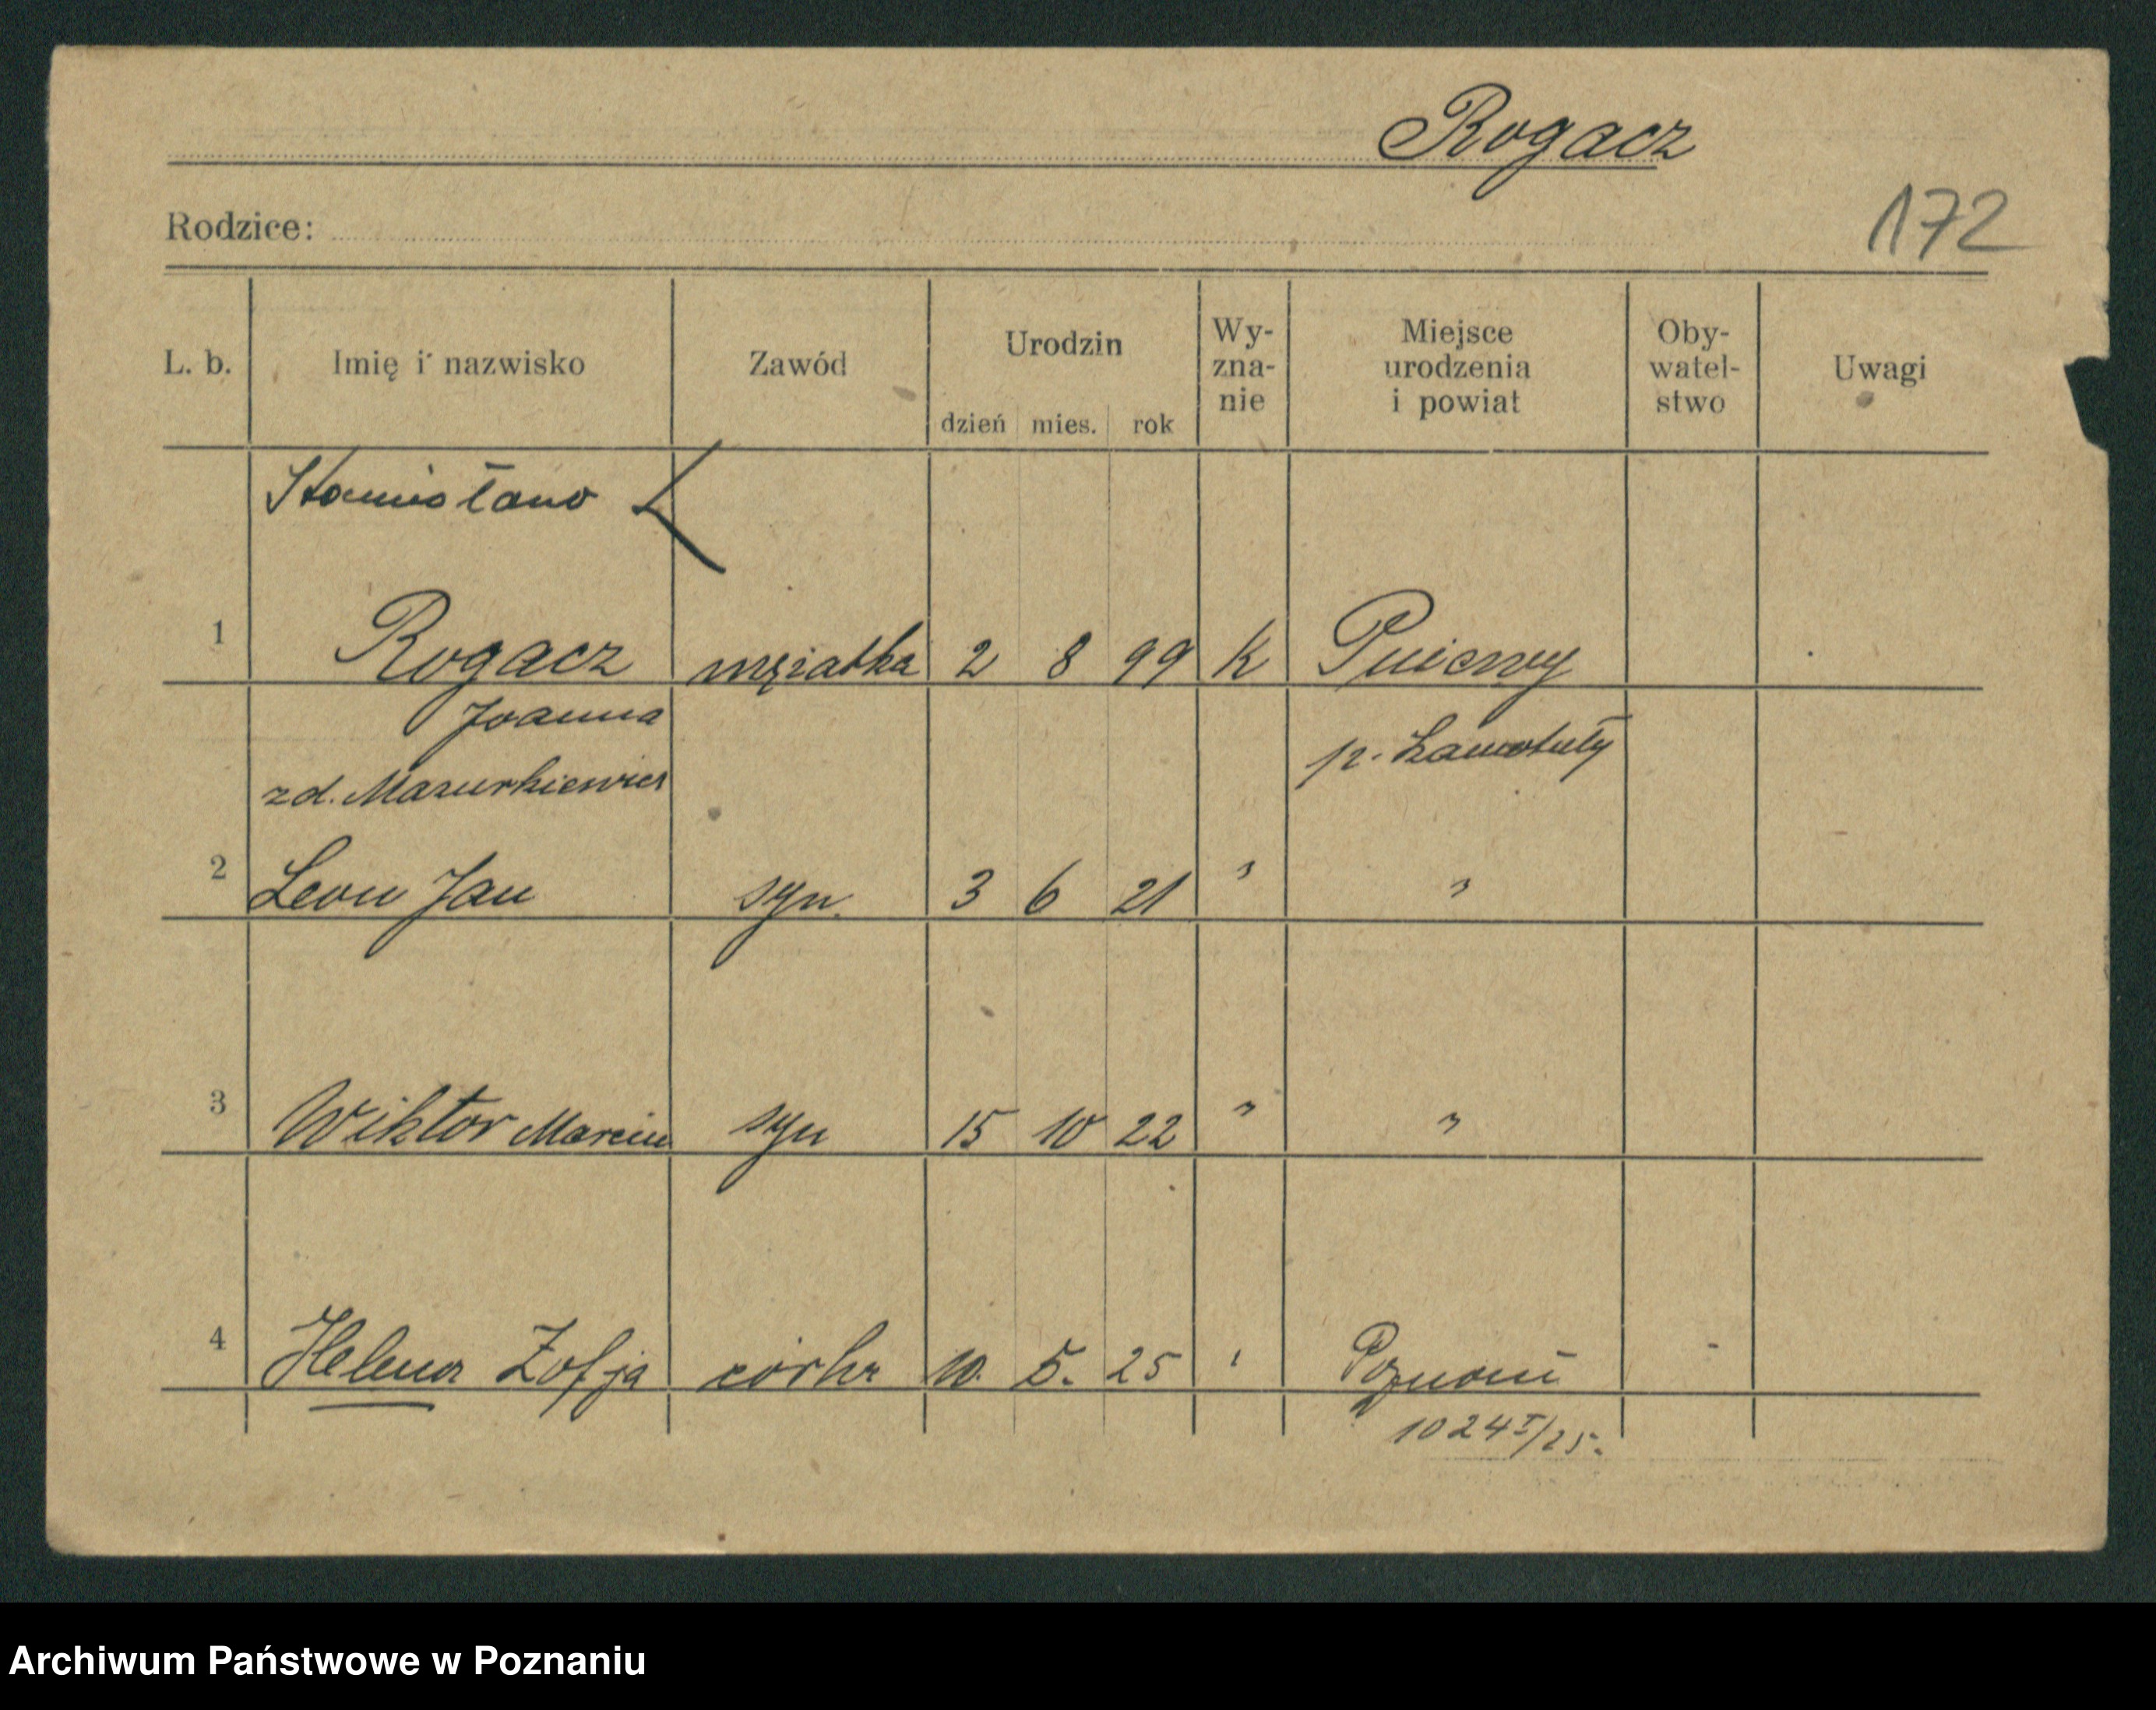 Rogacz
Rodzice:
172
L. b. Imię i nazwisko Zawód Urodzin dzień mies. rok Wy-zna-nie Miejsce urodzenia i powiat Oby-watel-stwo Uwagi
Stanisław
1 Rogacz mężatka 2 8 99 k Pniewy
Joanna
p. Szamotuły
zd. Mazurkiewicz
2 Leon Jan syn. 3 6 21 " "
3 Wiktor Marcin syn 15 10 22 " "
4 Helena Zofja córka 10. 5. 25 " Poznań
1024 I/25.
Archiwum Państwowe w Poznaniu